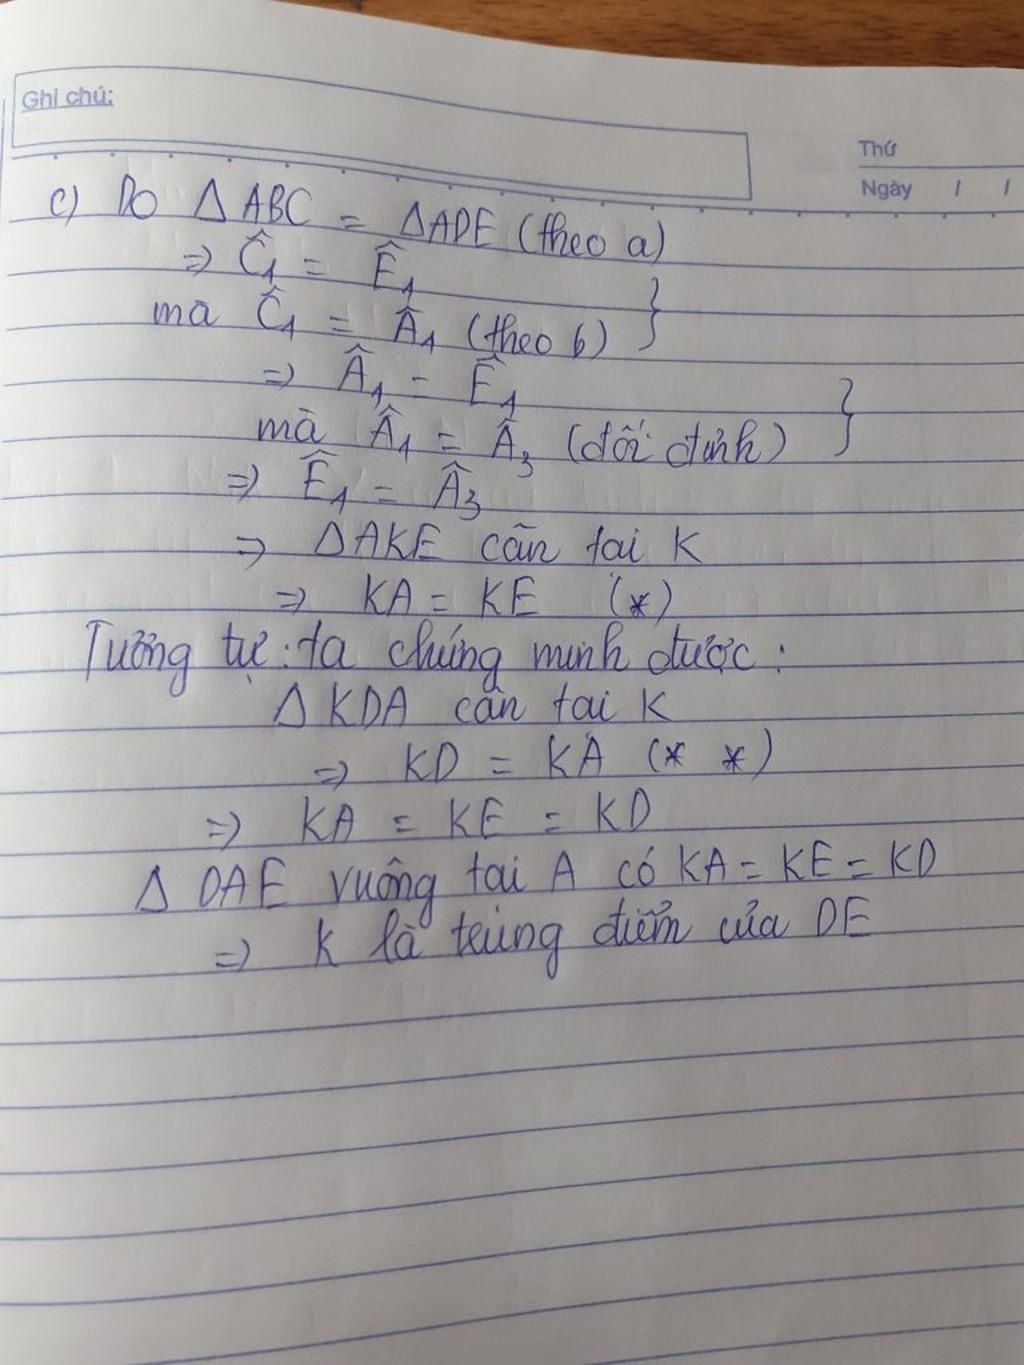 Ghi chú:
Thứ
Ngày / /
c) Do Δ ABC = ΔADE (theo a)
=> Ĉ₁ = Ê₁ }
mà Ĉ₁ = Â₁ (theo b)
=> Â₁ = Ê₁ }
mà Â₁ = Â₃ (đối đỉnh)
=> Ê₁ = Â₃
=> ΔAKE cân tại K
=> KA = KE (*)
Tương tự: ta chứng minh được:
Δ KDA cân tại K
=> KD = KA (* *)
=> KA = KE = KD
Δ DAE vuông tại A có KA = KE = KD
=> K là trung điểm của DE